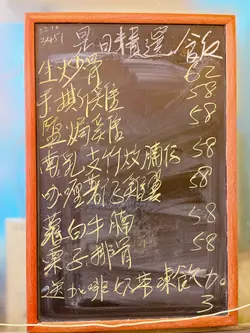 是日精選 飯
生炒骨 62
手撕雞 58
鹽焗雞 58
南乳支竹炆腩仔 58
仔雞翼 58
蘿白牛腩 58
栗子排骨 58
送咖啡奶茶凍飲加
3